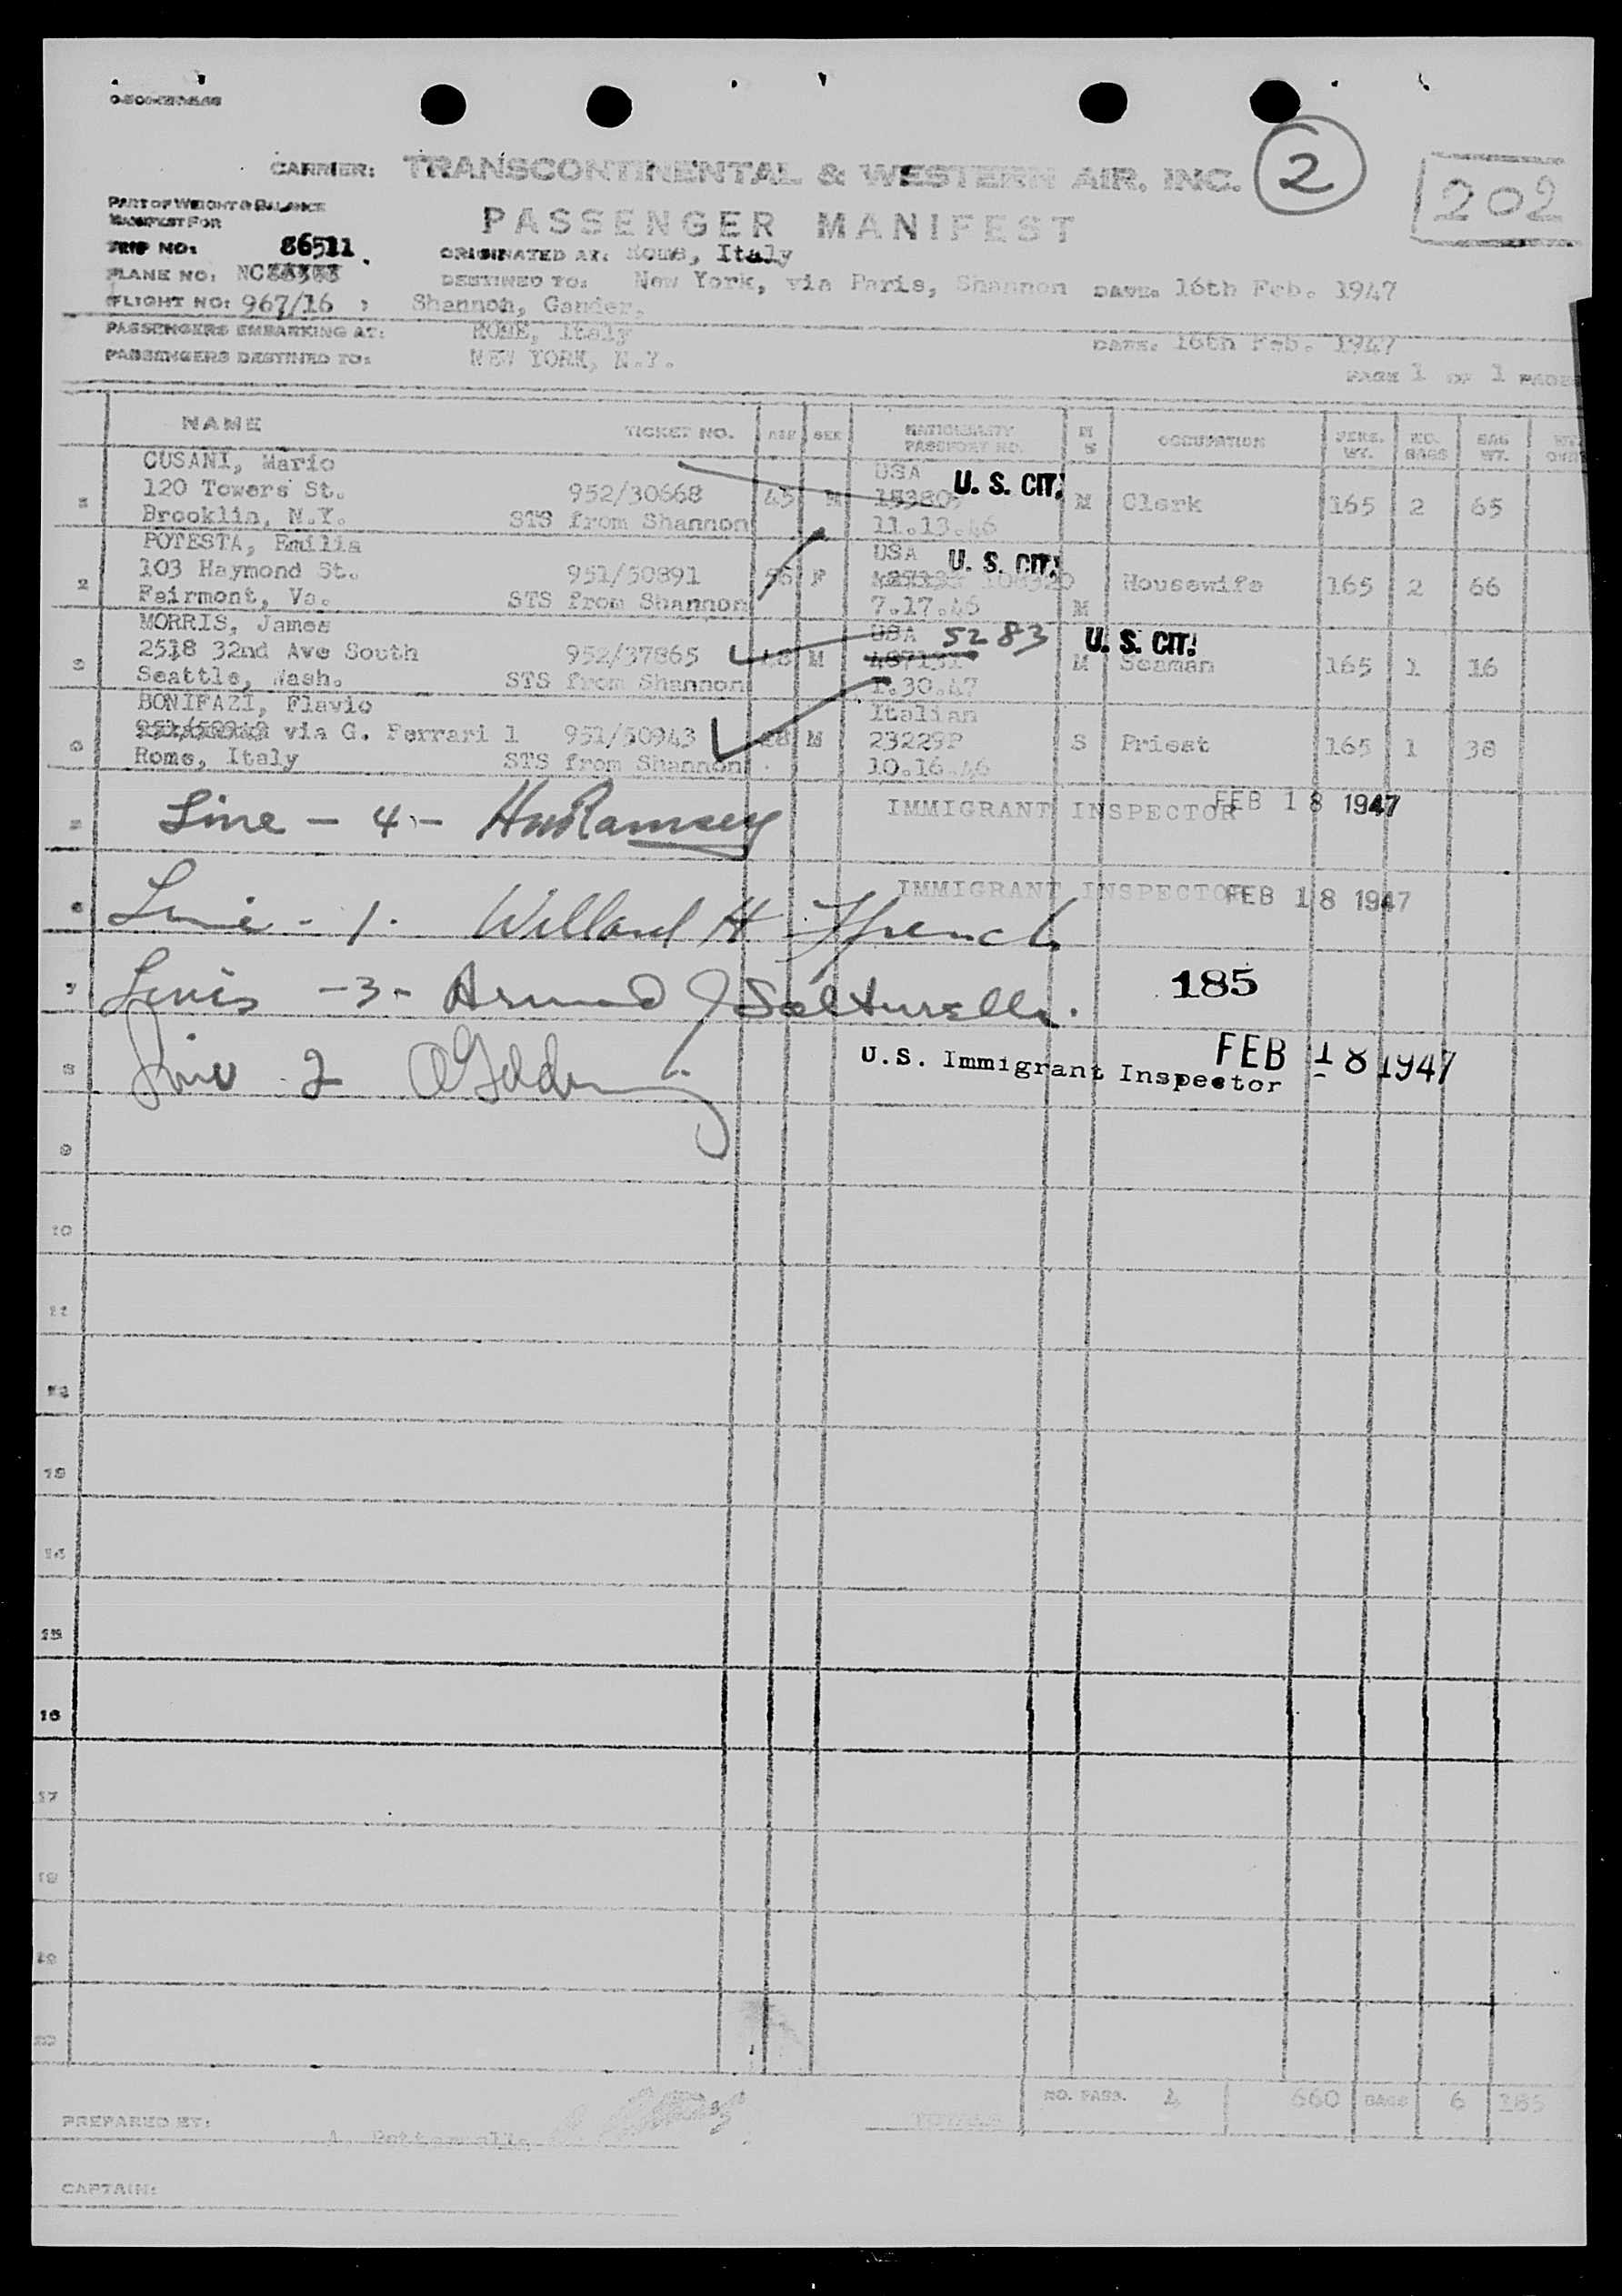 CARRIER: TRANSCONTINENTAL & WESTERN AIR. INC. 2
202
PART OF WEIGHT & BALANCE
MANIFEST FOR
PASSENGER MANIFEST
TRIP NO: 86511
ORIGINATED AT: Rome, Italy
PLANE NO:
DESTINED TO: New York, via Paris, Shannon DATE: 16th Feb. 1947
FLIGHT NO: 967/16 Shannon, Gander,
PASSENGERS EMBARKING AT: ROME, Italy DATE: 16th Feb. 1947
PASSENGERS DESTINED TO: NEW YORK, N.Y.
PAGE 1 OF 1 PAGES
NAME TICKET NO. AGE SEX NATIONALITY PASSPORT NO. M S OCCUPATION PERS. WT. NO. BAGS BAG WT.
CUSANI, Mario USA U. S. CIT.
1 120 Towers St. 952/30668 45 M M Clerk 165 2 65
Brooklin, N.Y. STS from Shannon 11.13.46
POTESTA, Emilia USA U. S. CIT.
2 103 Haymond St. 951/50891 56 F Housewife 165 2 66
Fairmont, Va. STS from Shannon 7.17.46 M
MORRIS, James USA 5283 U. S. CIT.
3 2518 32nd Ave South 952/37865 48 M M Seaman 165 1 16
Seattle, Wash. STS from Shannon 1.30.47
BONIFAZI, Flavio Italian
via G. Ferrari 1 951/50943 28 M 23229P S Priest 165 1 38
Rome, Italy STS from Shannon 10.16.46
Line - 4 - HW Ramsey IMMIGRANT INSPECTOR FEB 18 1947
6 Line - 1. Willard H Ffrench IMMIGRANT INSPECTOR FEB 18 1947
7 -3- J 185
8 Line 2 U.S. Immigrant Inspector FEB 18 1947
9
10
11
12
13
14
15
16
17
18
19
20
NO. PASS. 4 660 BAGS 6 185
TOTALS
PREPARED BY:
CAPTAIN: